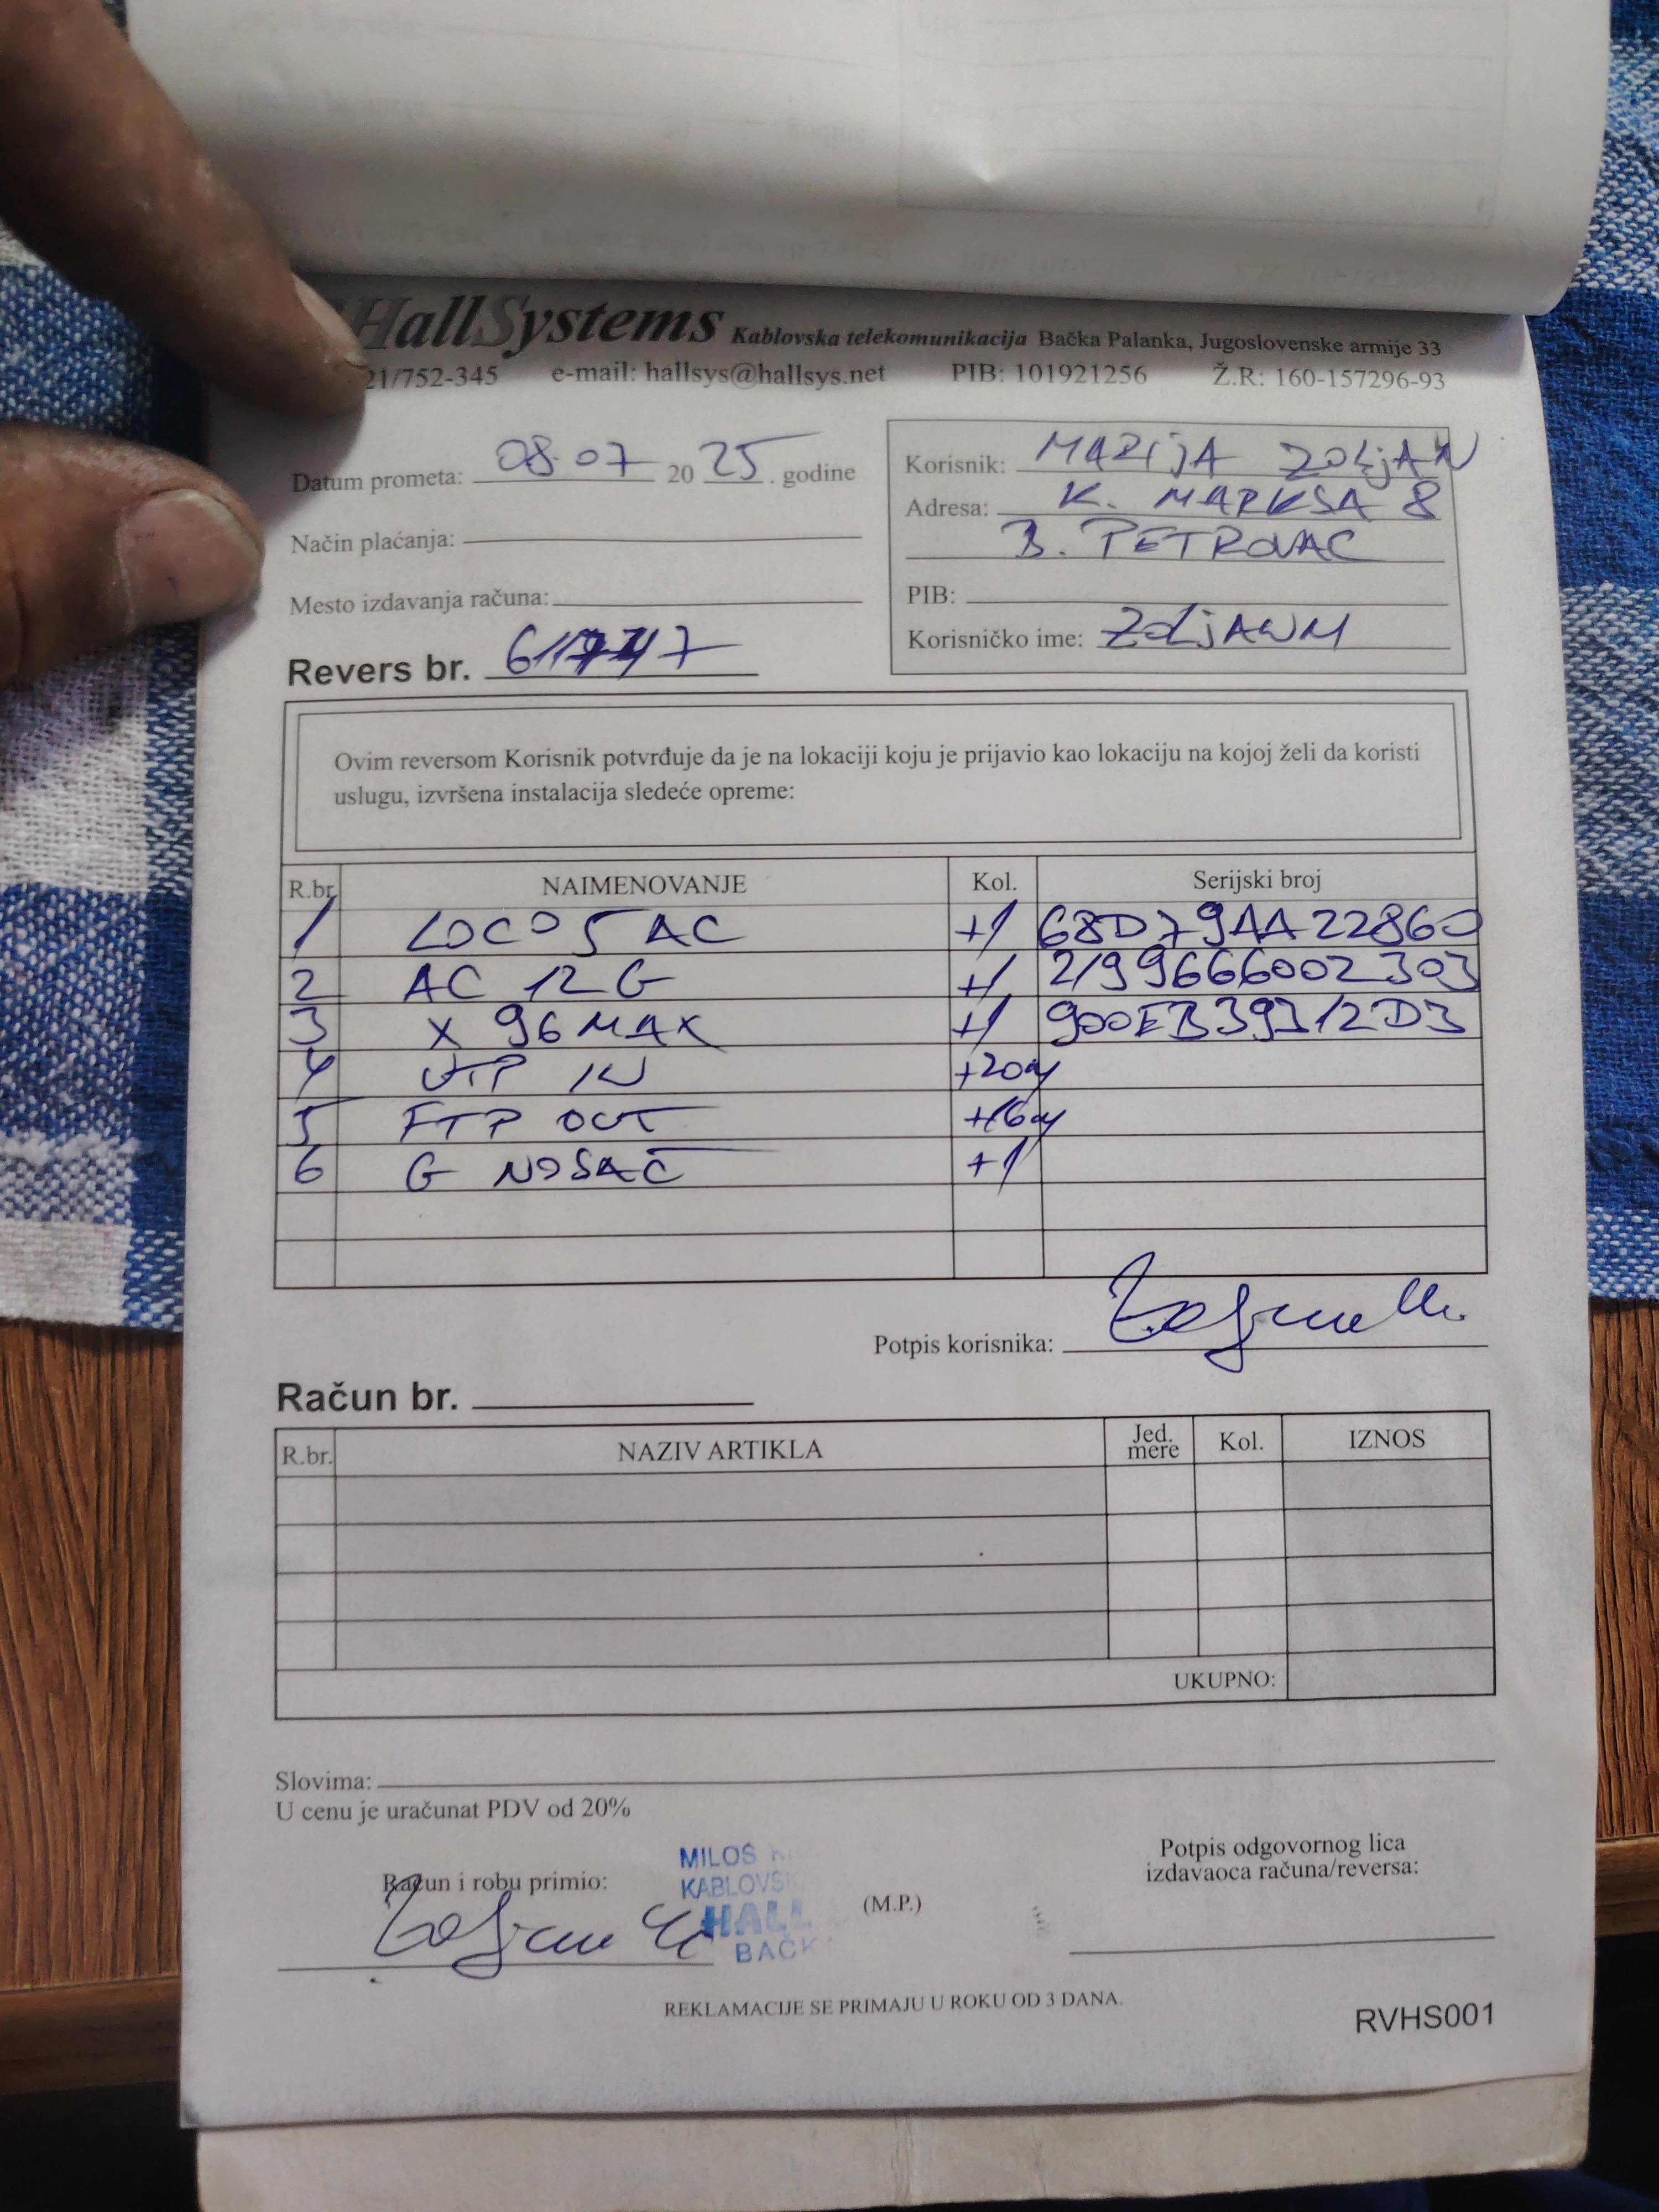 HallSystems Kablovska telekomunikacija Bačka Palanka, Jugoslovenske armije 33
21/752-345 e-mail: hallsys@hallsys.net PIB: 101921256 Ž.R: 160-157296-93
Datum prometa: 08.07 2025. godine
Način plaćanja:
Mesto izdavanja računa:
Revers br.
Korisnik: MARIJA ZOLJAN
Adresa: K. MARKSA 8
B. PETROVAC
PIB:
Korisničko ime: ZOLJANM
Ovim reversom Korisnik potvrđuje da je na lokaciji koju je prijavio kao lokaciju na kojoj želi da koristi
uslugu, izvršena instalacija sledeće opreme:
R.br. NAIMENOVANJE Kol. Serijski broj
1 LOCO 5 AC +1 68D79AA22860
2 AC 12 G +1 2199666002303
3 X 96 MAX +1 900EB39312D3
4 UTP IN +20m
5 FTP OUT +16m
6 G NOSAČ +1
Potpis korisnika:
Račun br.
R.br. NAZIV ARTIKLA Jed. mere Kol. IZNOS
UKUPNO:
Slovima:
U cenu je uračunat PDV od 20%
Račun i robu primio:
MILOŠ
KABLOVSK
HALL
BAČK
(M.P.)
Potpis odgovornog lica
izdavaoca računa/reversa:
REKLAMACIJE SE PRIMAJU U ROKU OD 3 DANA.
RVHS001